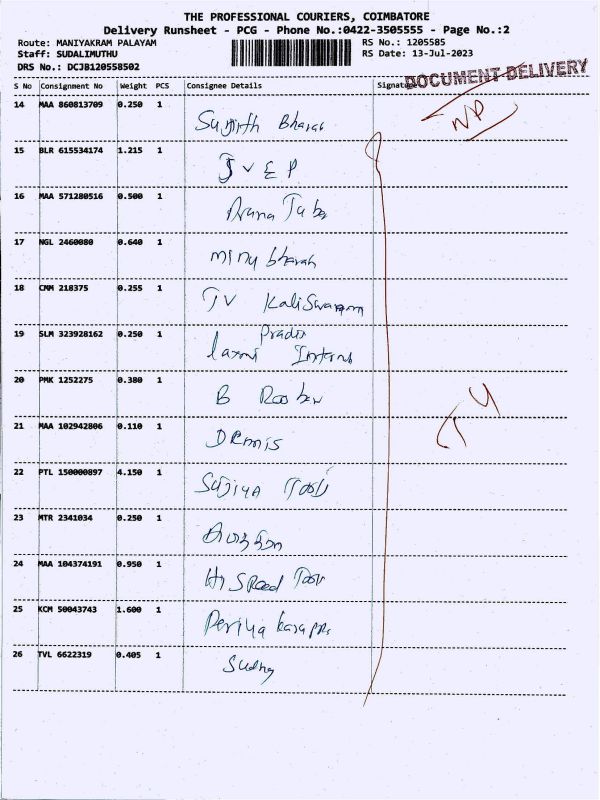 THE PROFESSIONAL COURIERS, COIMBATORE
Delivery Runsheet - PCG - Phone No.:0422-3505555 - Page No.:2
Route: MANIYAKRAM PALAYAM
RS No.: 1205585
Staff: SUDALIMUTHU
RS Date: 13-Jul-2023
DRS No.: DCJB120558502
DOCUMENT DELIVERY
S No Consignment No Weight PCS Consignee Details Signature
14 MAA 860813709 0.250 1
Bharat
NP
15 BLR 615534174 1.215 1
J V E P
16 MAA 571280516 0.500 1
17 NGL 2460080 0.640 1
minu bharath
18 CMM 218375 0.255 1
TV Kaliswaram
19 SLM 323928162 0.250 1
laxmi
20 PMK 1252275 0.380 1
B Rooben
21 MAA 102942806 0.110 1
Dennis
22 PTL 150000897 4.150 1
Sujiya Tools
23 MTR 2341034 0.250 1
24 MAA 104374191 0.950 1
Hi Speed Tools
25 KCM 50043743 1.600 1
Periya
26 TVL 6622319 0.405 1